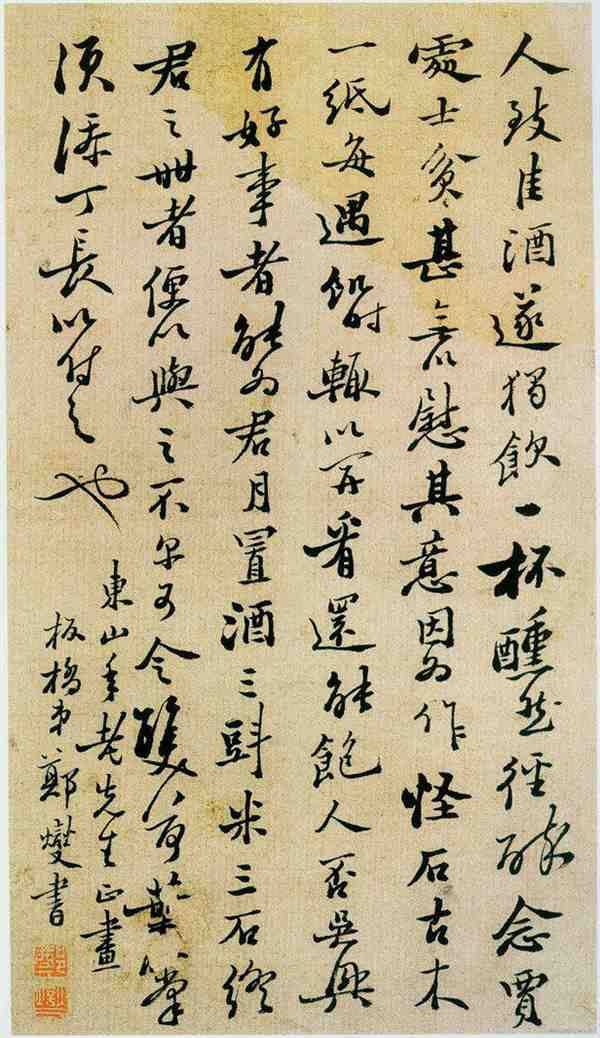 人致佳酒遂獨飲一杯醺然徑醉念賈
處士貧甚無以慰其意因為作怪石古木
一紙每遇飢時輒以開看還能飽人否吳興
有好事者能為君月置酒三㪷米三石終
君之世者便以與之不尔可令雙荷葉收掌
須添丁長以付之也
東山年老先生正畫
板橋弟鄭燮書